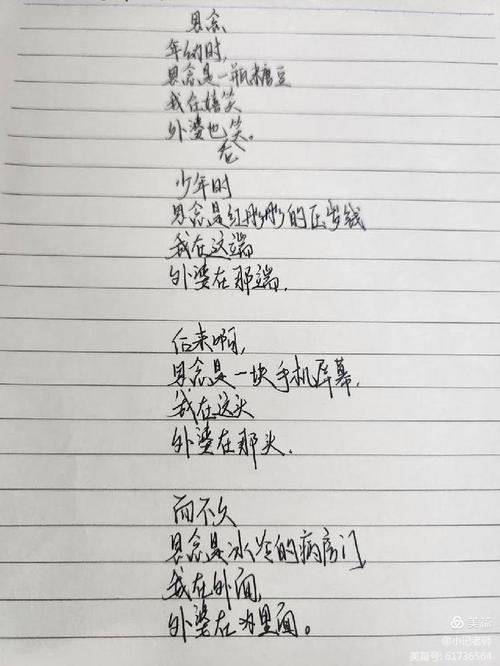 思念
年幼时,
思念是一瓶糖豆
我在嬉笑
外婆也笑。
少年时
思念是红彤彤的压岁钱
我在这端
外婆在那端.
后来啊,
思念是一块手机屏幕.
我在这头
外婆在那头.
而不久
思念是冰冷的病房门
我在外面,
外婆在里面。
美篇
@小记老师
美篇号: 61736564